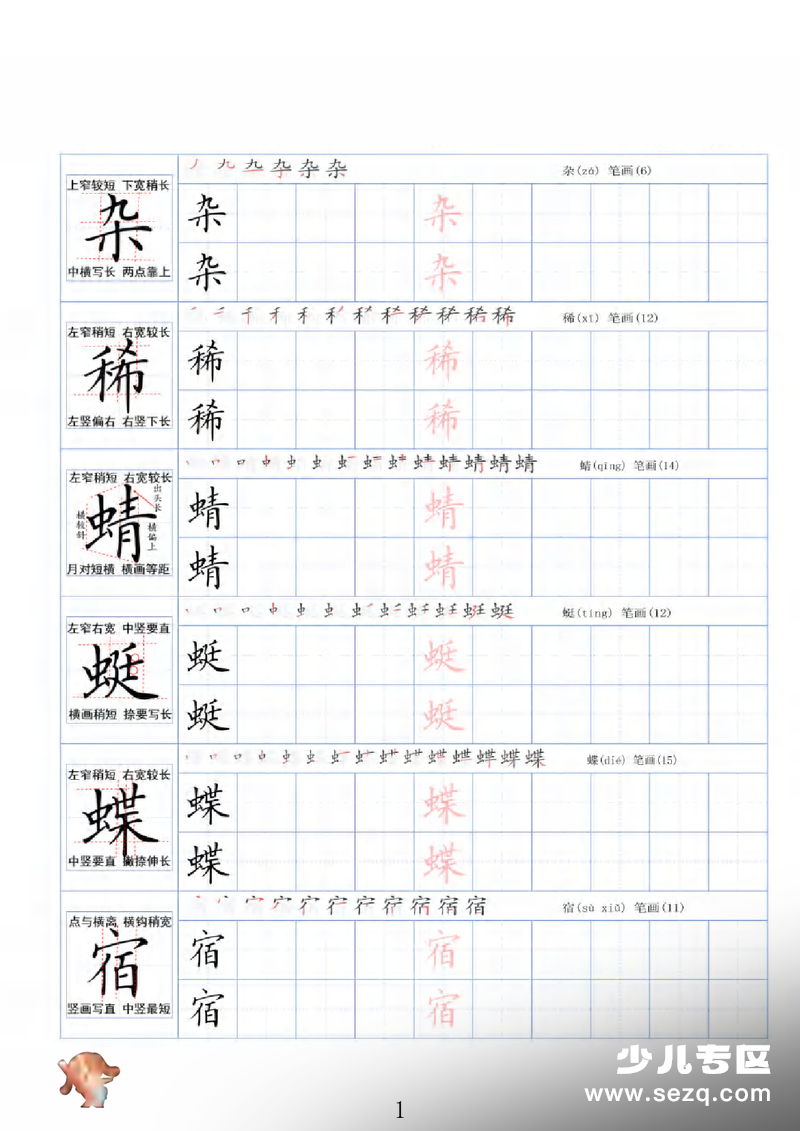 杂(zá) 笔画(6)
上窄较短 下宽稍长
杂
中横写长 两点靠上
杂 杂
杂 杂
稀(xī) 笔画(12)
左窄稍短 右宽较长
稀
左竖偏右 右竖下长
稀 稀
稀 稀
蜻(qīng) 笔画(14)
左窄稍短 右宽较长
出头长
横较斜
横偏上
蜻
月对短横 横画等距
蜻 蜻
蜻 蜻
蜓(tíng) 笔画(12)
左窄右宽 中竖要直
蜓
横画稍短 捺要写长
蜓 蜓
蜓 蜓
蝶(dié) 笔画(15)
左窄稍短 右宽较长
蝶
中竖要直 撇捺伸长
蝶 蝶
蝶 蝶
宿(sù xiǔ) 笔画(11)
点与横离 横钩稍宽
宿
竖画写直 中竖最短
宿 宿
宿 宿
少儿专区
www.sezq.com
1